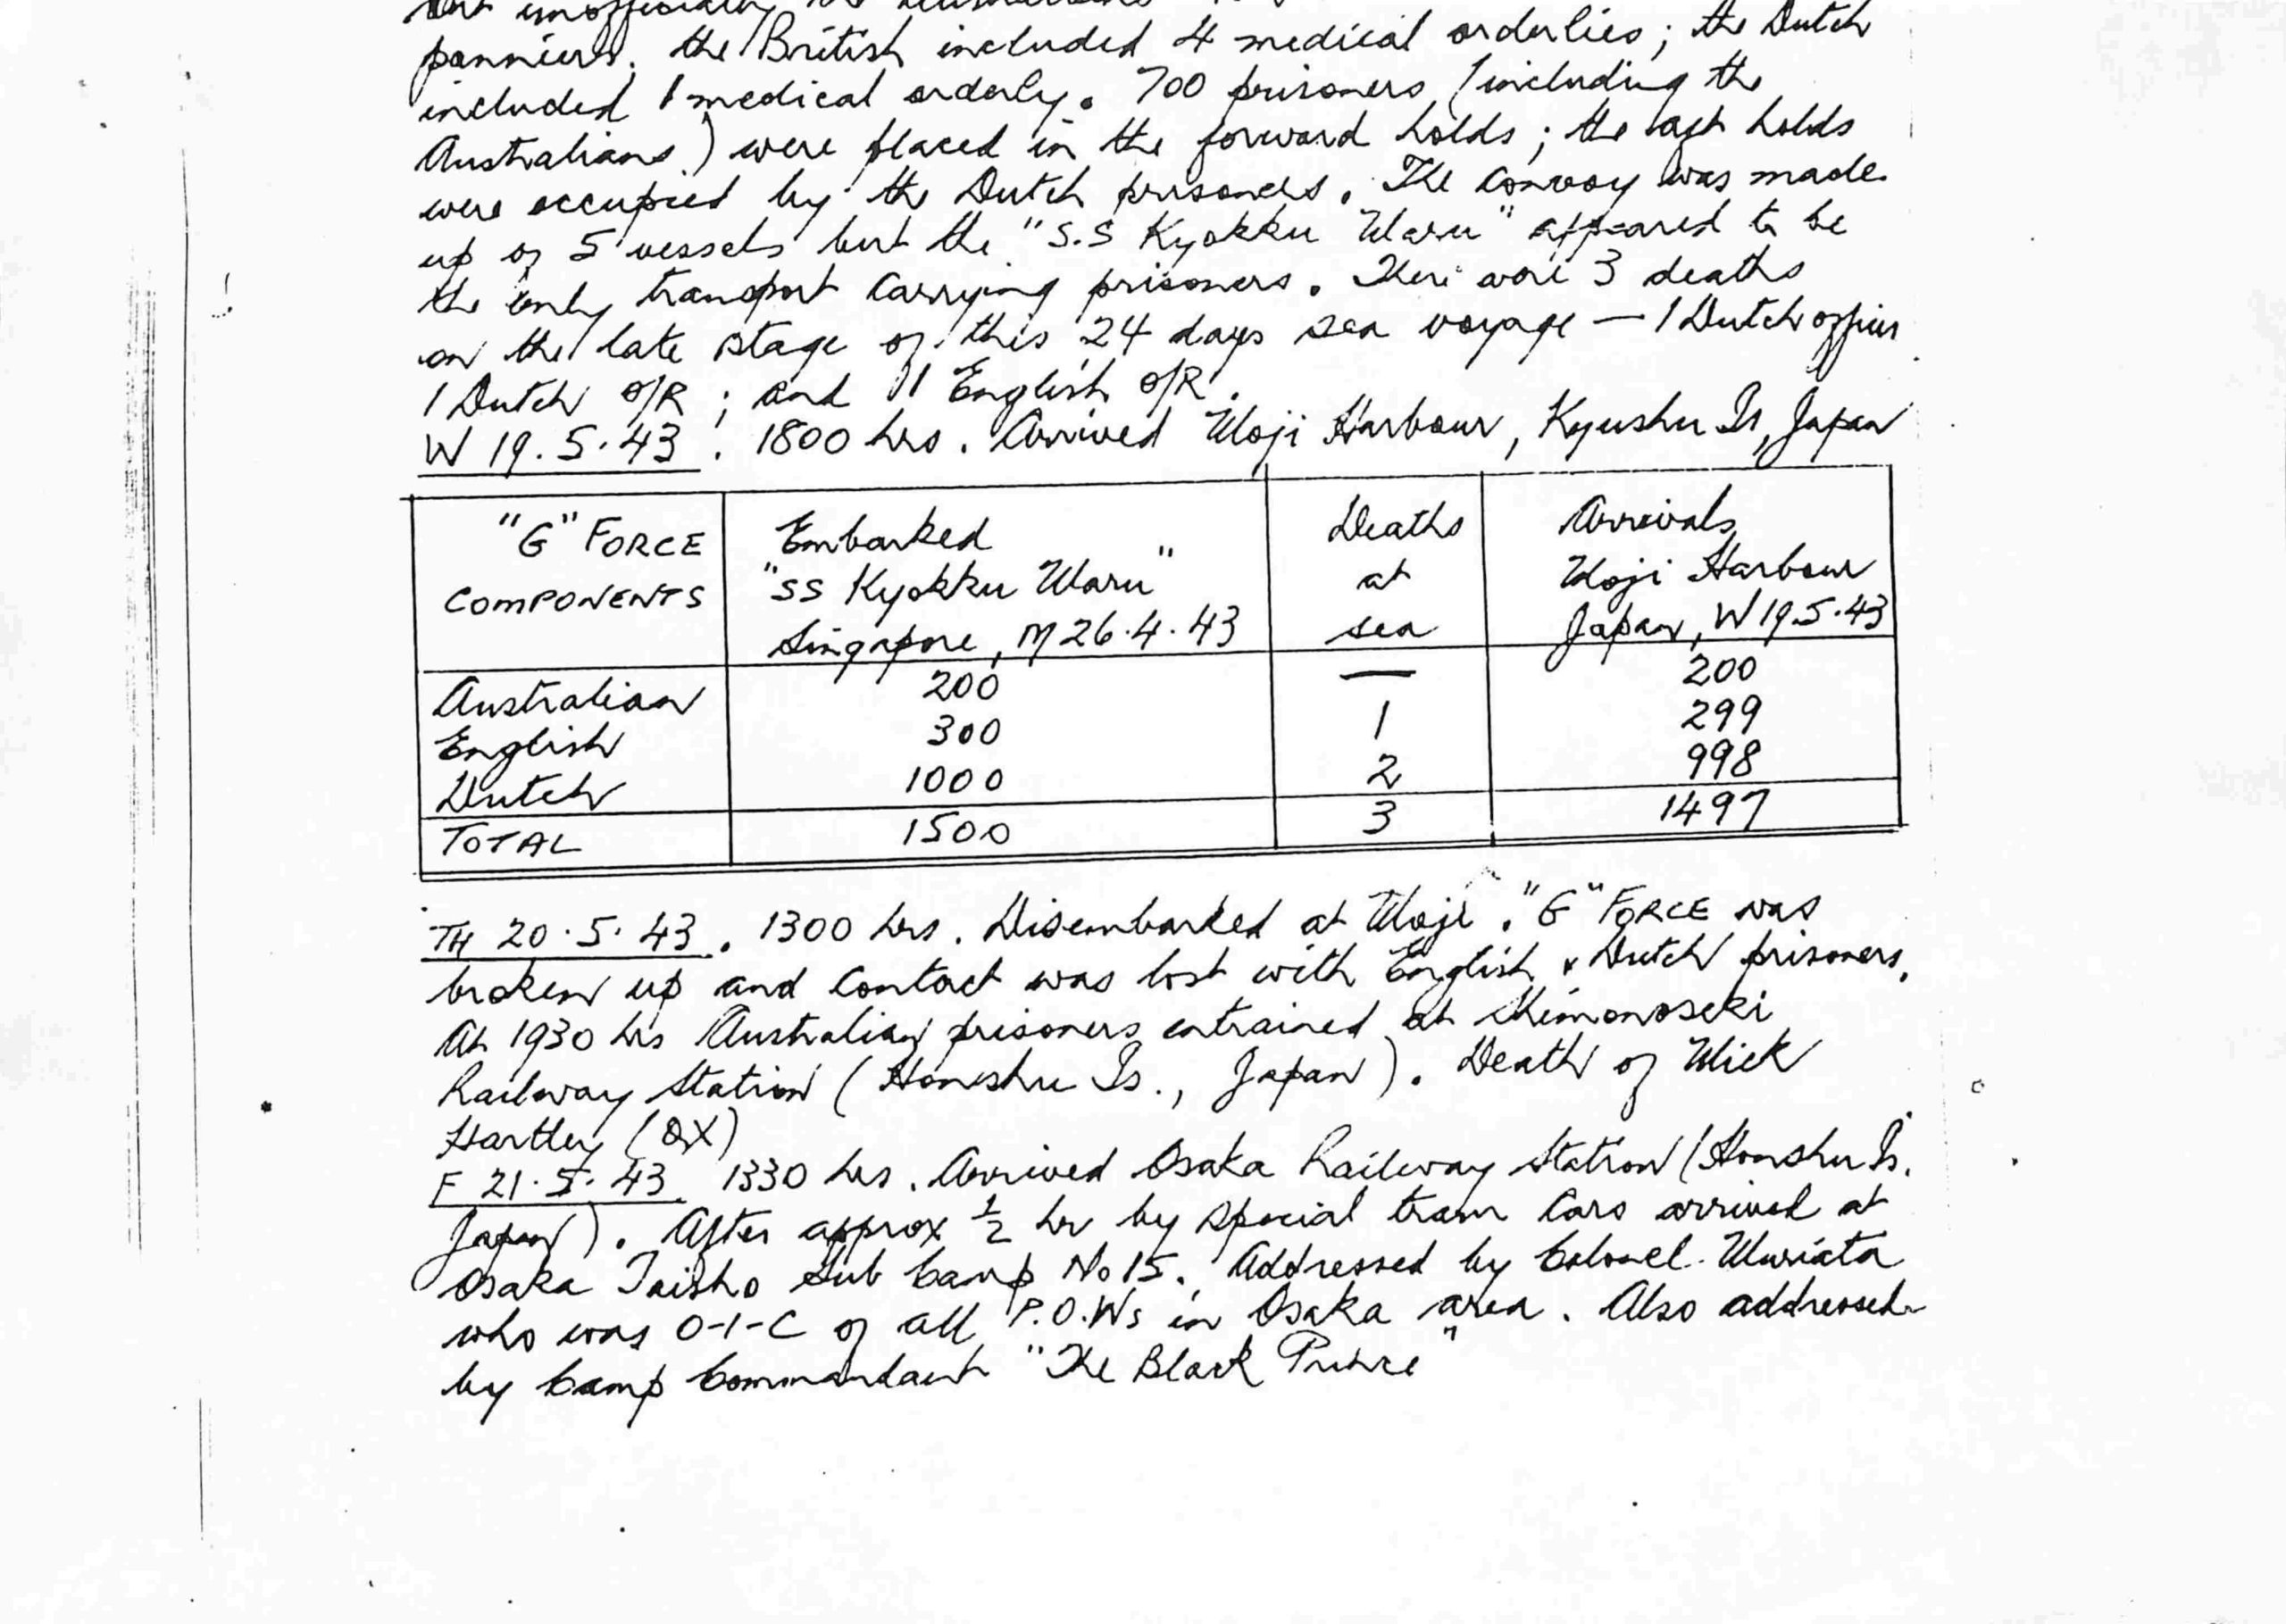 but unofficially the
panniers. the British included 4 medical orderlies; the Dutch
included 1 medical orderly. 700 prisoners (including the
Australians) were placed in the forward holds; the aft holds
were occupied by the Dutch prisoners. The Convoy was made
up of 5 vessels but the "S.S Kyokku Maru" appeared to be
the only transport carrying prisoners. There were 3 deaths
on the late stage of this 24 days sea voyage — 1 Dutch officer
1 Dutch O/R; and 1 English O/R.
W 19.5.43. 1800 hrs. Arrived Moji Harbour, Kyushu Is, Japan
"G" FORCE COMPONENTS | Embarked "SS Kyokku Maru" Singapore, M 26.4.43 | Deaths at sea | Arrivals Moji Harbour Japan, W 19.5.43
Australian | 200 | — | 200
English | 300 | 1 | 299
Dutch | 1000 | 2 | 998
TOTAL | 1500 | 3 | 1497
TH 20.5.43. 1300 hrs. Disembarked at Moji. "G" FORCE was
broken up and contact was lost with English & Dutch prisoners.
At 1930 hrs Australian prisoners entrained at Shimonoseki
Railway Station (Honshu Is., Japan). Death of Mick
Hartley (QX)
F 21.5.43. 1330 hrs. Arrived Osaka Railway Station (Honshu Is.
Japan). After approx ½ hr by special tram cars arrived at
Osaka Taisho Sub Camp No 15. Addressed by Colonel Muriata
who was O-I-C of all P.O.Ws in Osaka area. Also addressed
by Camp Commandant "The Black Prince"